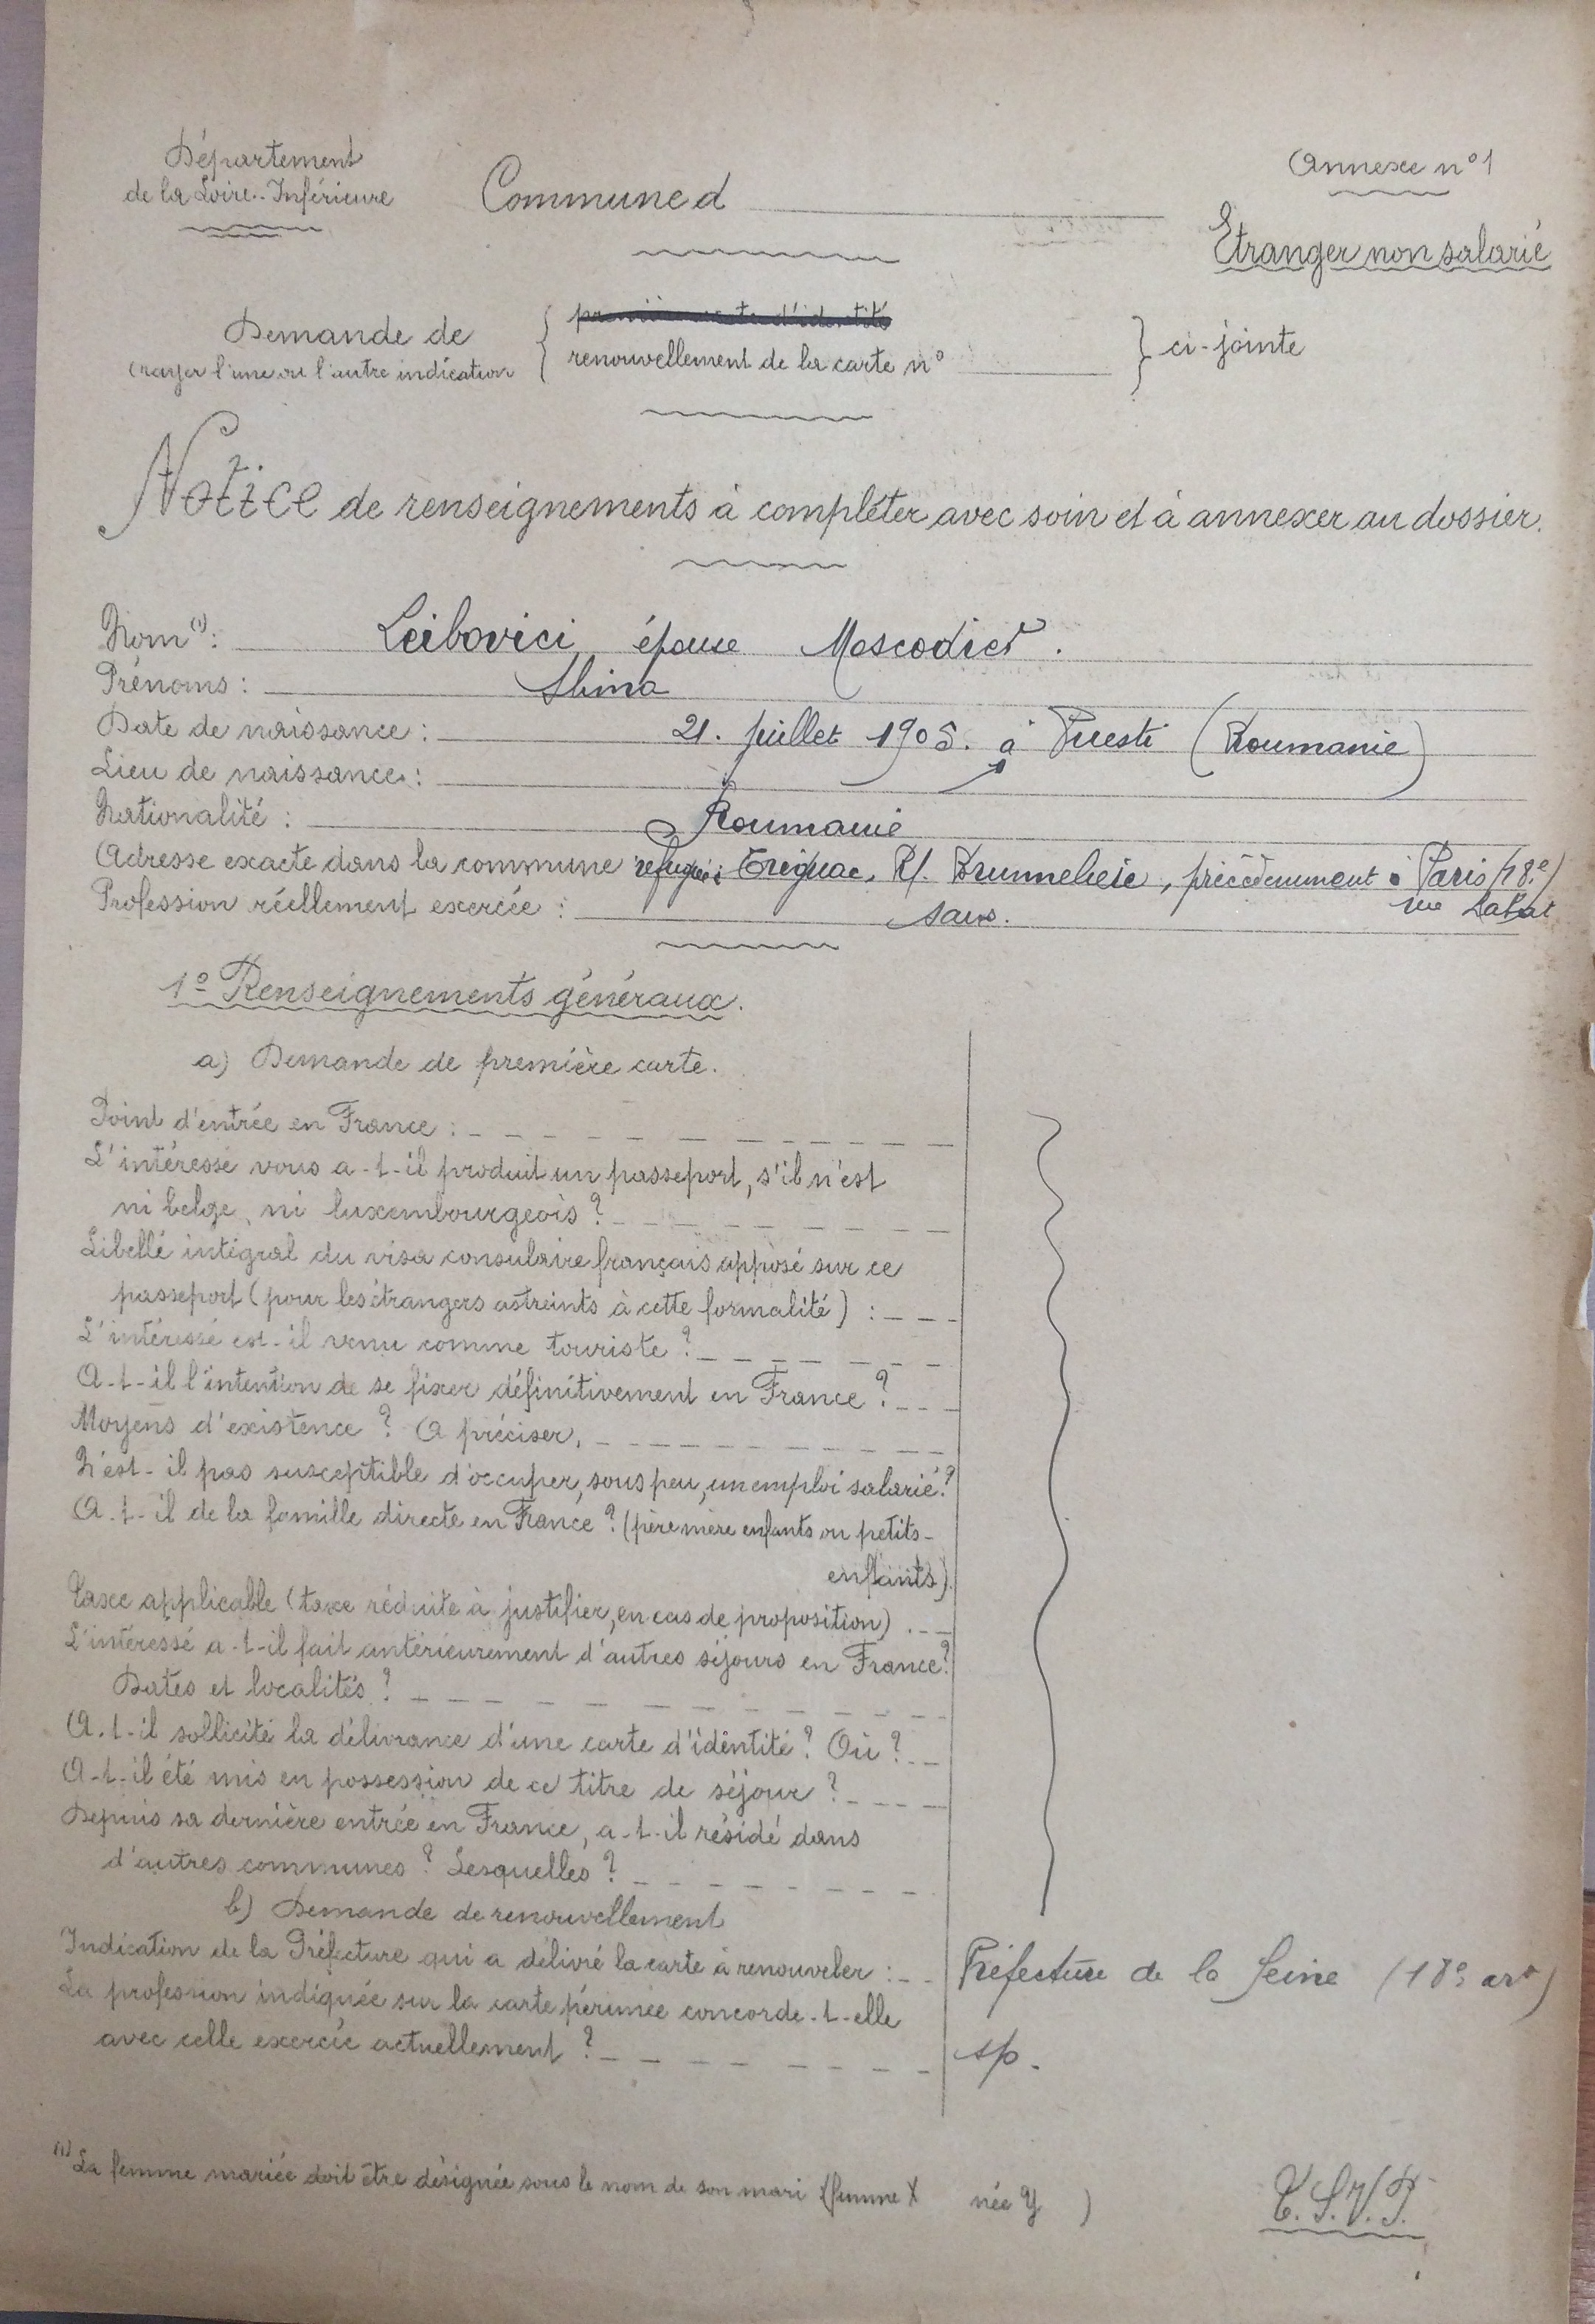 Département
de la Loire-Inférieure
Commune d
Annexe n° 1
Etranger non salarié
Demande de
(rayer l'une ou l'autre indication
première carte d'identité
renouvellement de la carte n°
ci-jointe
Notice de renseignements à compléter avec soin et à annexer au dossier.
Nom (1) : Leibovici épouse Moscovici.
Prénoms :
Date de naissance : 21. juillet 1905. à (Roumanie)
Lieu de naissance :
Nationalité : Roumanie
Adresse exacte dans la commune réfugiée Trignac, R. précédemment à Paris (18e)
rue Labat
Profession réellement exercée : sans.
1° Renseignements généraux.
a) Demande de première carte.
Point d'entrée en France :
L'intéressé vous a-t-il produit un passeport, s'il n'est
ni belge, ni luxembourgeois ?
Libellé intégral du visa consulaire français apposé sur ce
passeport (pour les étrangers astreints à cette formalité) :
L'intéressé est-il venu comme touriste ?
A-t-il l'intention de se fixer définitivement en France ?
Moyens d'existence ? A préciser,
N'est-il pas susceptible d'occuper, sous peu, un emploi salarié ?
A-t-il de la famille directe en France ? (père mère enfants ou petits-
enfants)
Taxe applicable (taxe réduite à justifier, en cas de proposition).
L'intéressé a-t-il fait antérieurement d'autres séjours en France ?
Dates et localités ?
A-t-il sollicité la délivrance d'une carte d'identité ? Où ?
A-t-il été mis en possession de ce titre de séjour ?
Depuis sa dernière entrée en France, a-t-il résidé dans
d'autres communes ? Lesquelles ?
b) Demande de renouvellement
Indication de la Préfecture qui a délivré la carte à renouveler : Préfecture de la Seine (18e arrt)
La profession indiquée sur la carte périmée concorde-t-elle
avec celle exercée actuellement ? sp.
(1) La femme mariée doit être désignée sous le nom de son mari (femme X née Y )
T.S.V.P.